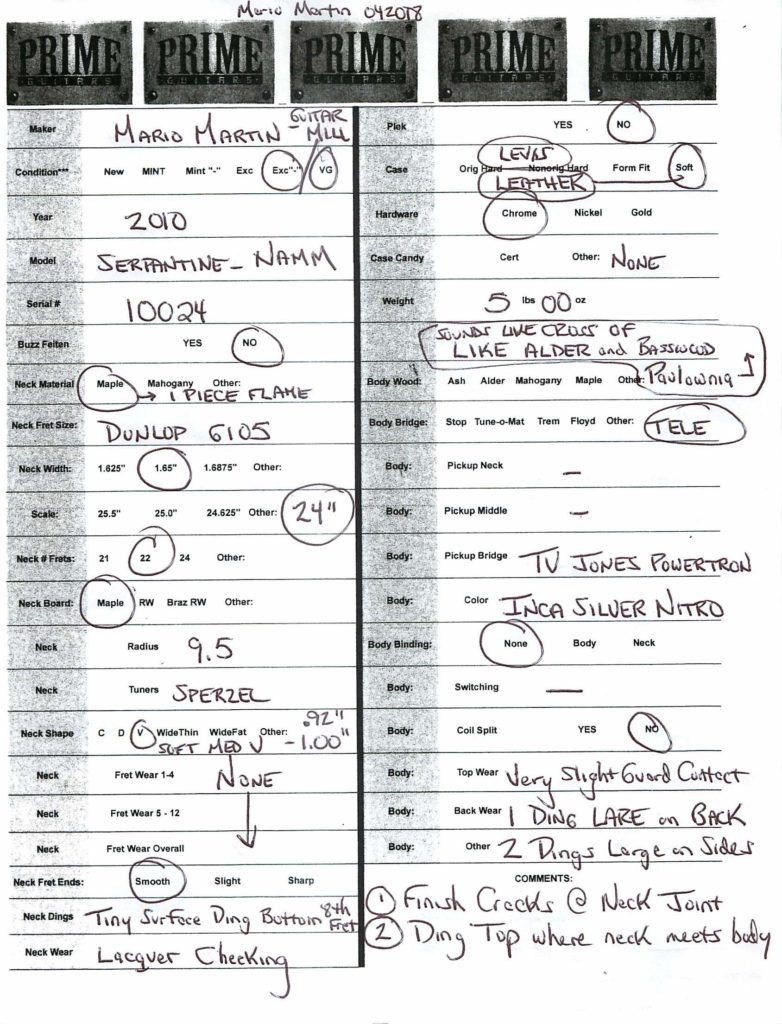 Mario Martin 042018
PRIME GUITARS PRIME GUITARS PRIME GUITARS PRIME GUITARS PRIME GUITARS
Maker MARIO MARTIN - GUITAR MILL
Condition*** New MINT Mint "-" Exc Exc"-" VG
Year 2010
Model SERPANTINE - NAMM
Serial # 10024
Buzz Feiten YES NO
Neck Material Maple Mahogany Other:
→ 1 PIECE FLAME
Neck Fret Size: DUNLOP 6105
Neck Width: 1.625" 1.65" 1.6875" Other:
Scale: 25.5" 25.0" 24.625" Other: 24"
Neck # Frets: 21 22 24 Other:
Neck Board: Maple RW Braz RW Other:
Neck Radius 9.5
Neck Tuners SPERZEL
Neck Shape C D V WideThin WideFat Other: .92" - 1.00"
SOFT MED V
Neck Fret Wear 1-4 NONE
Neck Fret Wear 5 - 12
Neck Fret Wear Overall
Neck Fret Ends: Smooth Slight Sharp
Neck Dings Tiny Surface Ding Bottom 8th Fret
Neck Wear Lacquer Checking
Piek YES NO
LEVIS
Case Orig Hard Nonorig Hard Form Fit Soft
LEATHER
Hardware Chrome Nickel Gold
Case Candy Cert Other: NONE
Weight 5 lbs 00 oz
SOUNDS LIKE CROSS OF
LIKE ALDER and BASSWOOD
Body Wood: Ash Alder Mahogany Maple Other: Paulownia
Body Bridge: Stop Tune-o-Mat Trem Floyd Other: TELE
Body: Pickup Neck —
Body: Pickup Middle —
Body: Pickup Bridge TV JONES POWERTRON
Body: Color INCA SILVER NITRO
Body Binding: None Body Neck
Body: Switching —
Body: Coil Split YES NO
Body: Top Wear Very Slight Guard Contact
Body: Back Wear 1 DING LARE on BACK
Body: Other 2 Dings Large on Sides
COMMENTS:
1 Finish Cracks @ Neck Joint
2 Ding Top where neck meets body